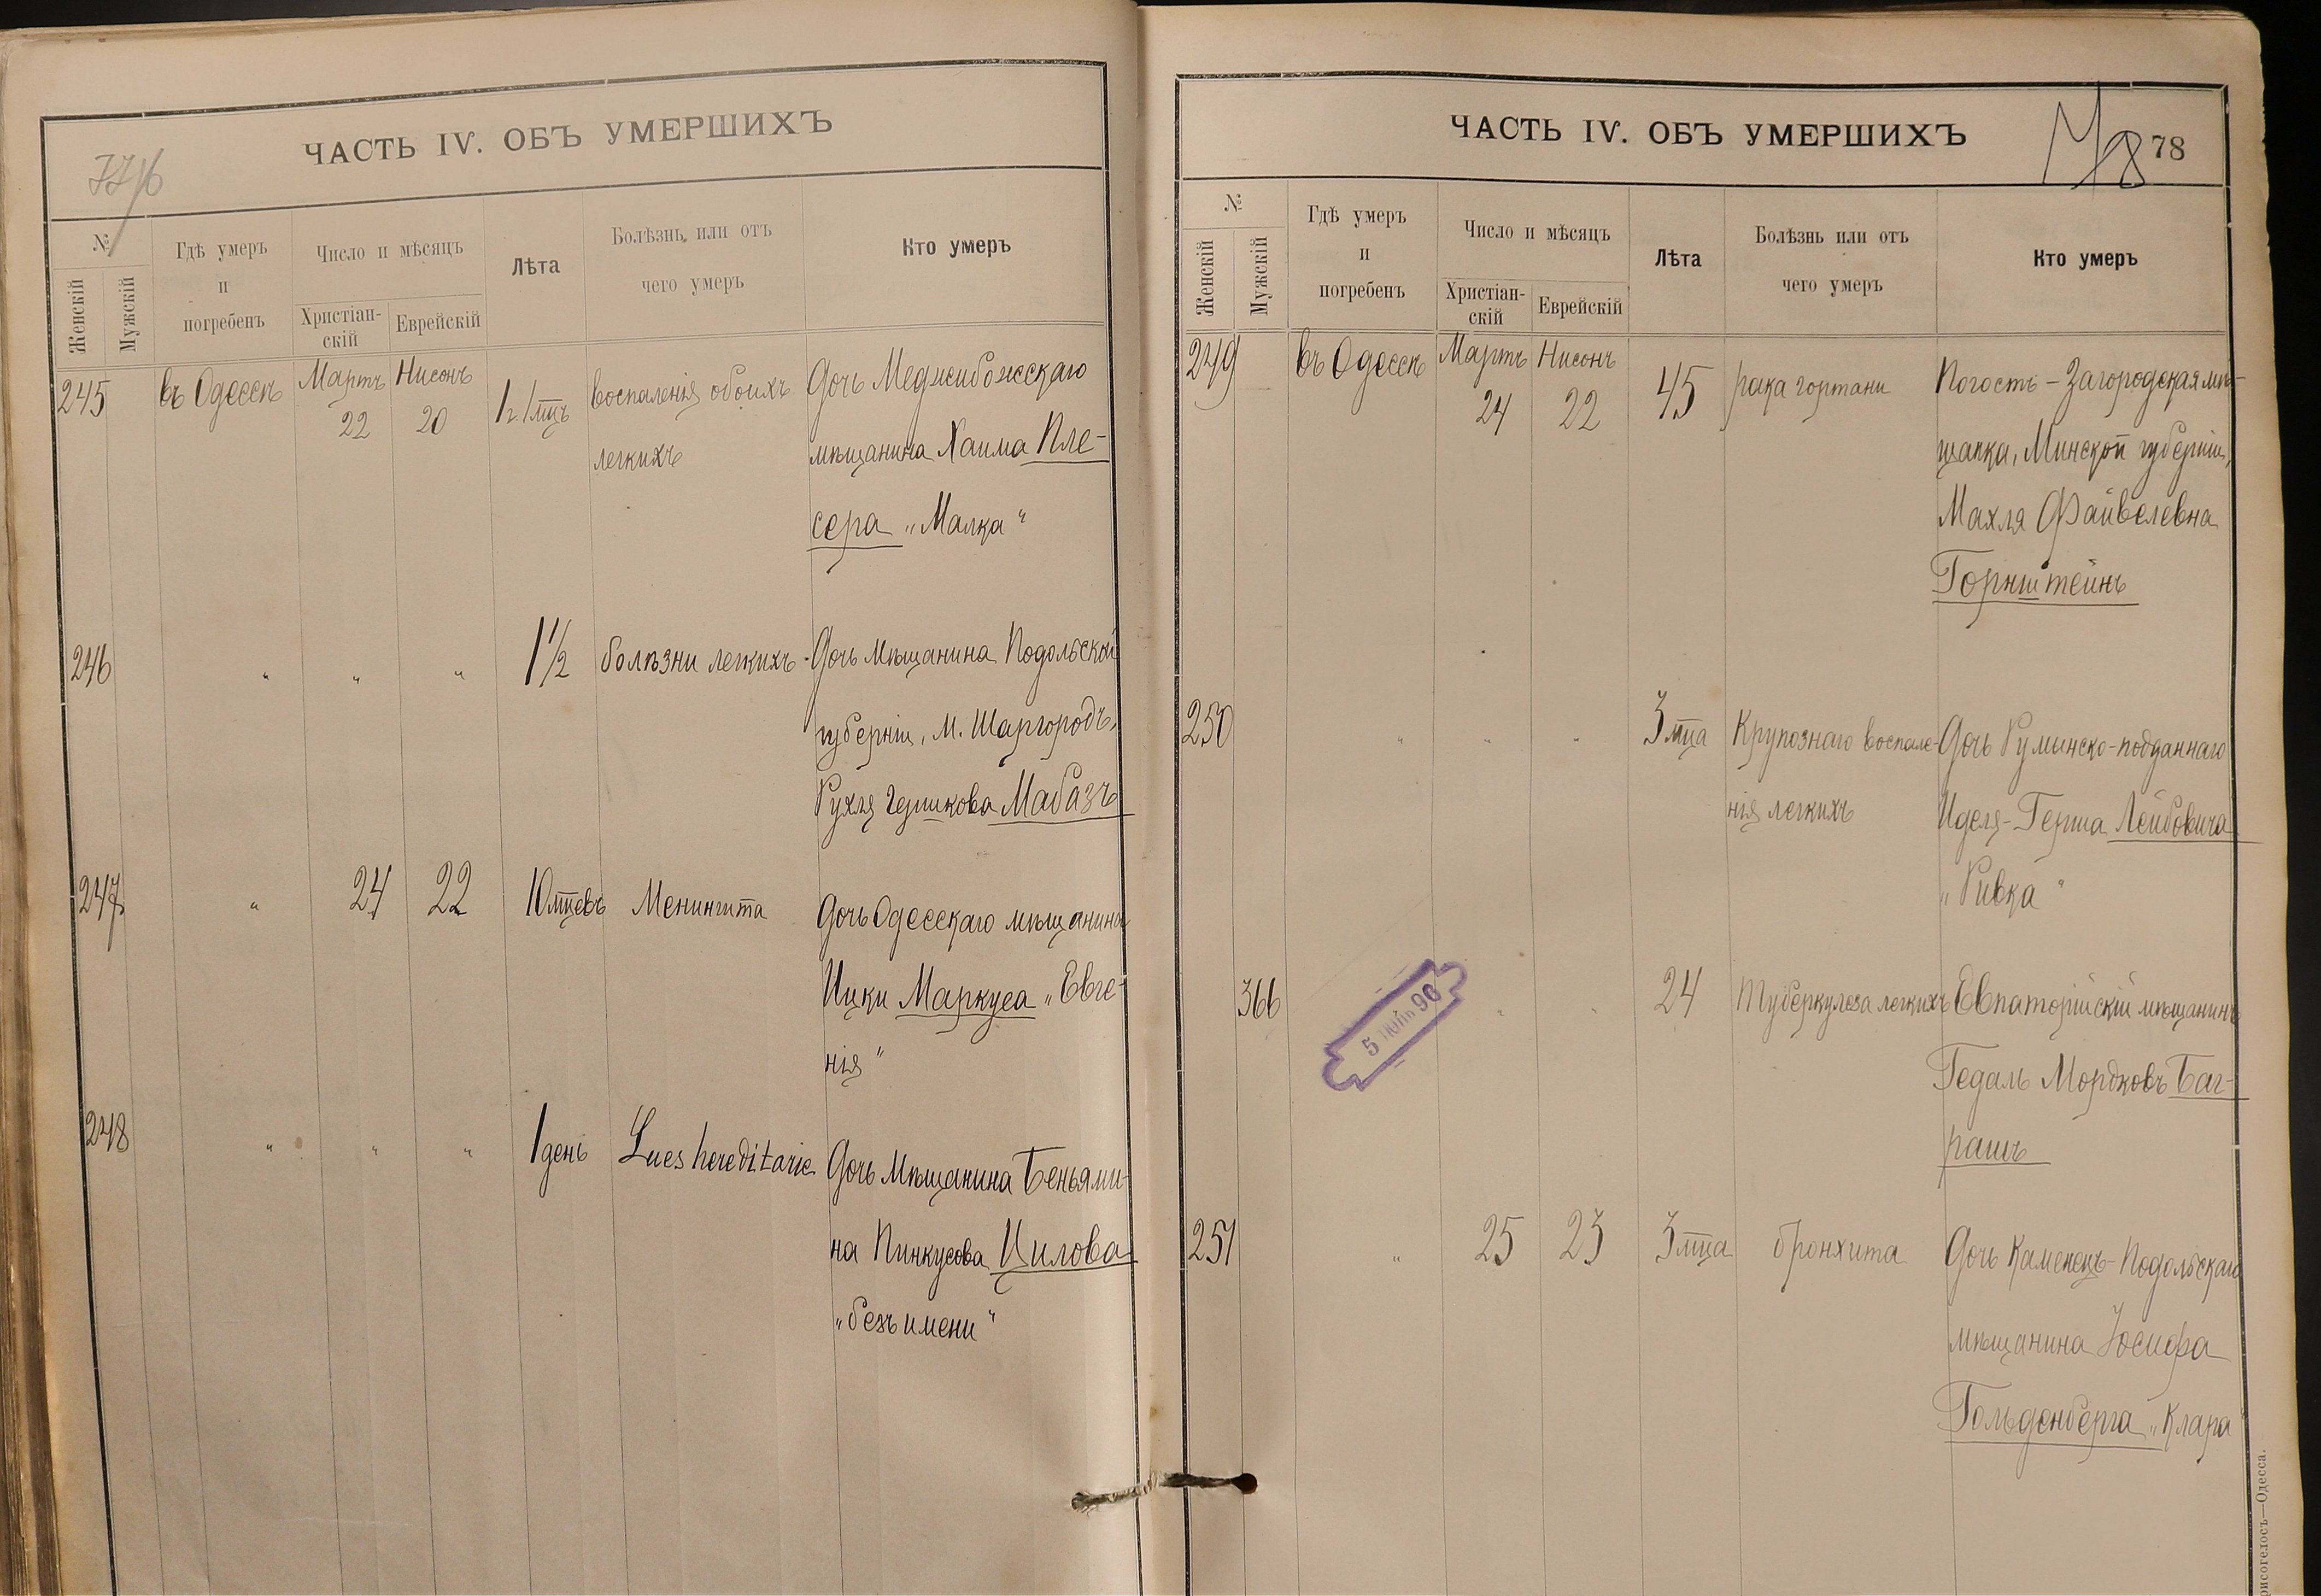 ЧАСТЬ IV. ОБЪ УМЕРШИХЪ
№
Женскій
Мужскій
Гдѣ умеръ
и
погребенъ
Число и мѣсяцъ
Христіан-
скій
Еврейскій
Лѣта
Болѣзнь или отъ
чего умеръ
Кто умеръ
245 въ Одессѣ Мартъ 22 Нисонъ 20 1 г. 1 мцъ воспаленія обоихъ Дочь Меджибожскаго
легкихъ мѣщанина Хаима Пле-
сера „Малка“
246 " " " 1 1/2 болѣзни легкихъ Дочь мѣщанина Подольской
губерніи, м. Шаргородъ,
Рухля Гершкова Мабазъ
247 " 24 22 10 мцевъ Менингита Дочь Одесскаго мѣщанина
Ицки Маркуса „Евге-
нія“
248 " " " 1 день Lues hereditarie Дочь мѣщанина Беньями-
на Пинкусова Цилова
„безъ имени“
ЧАСТЬ IV. ОБЪ УМЕРШИХЪ
78
№
Женскій
Мужскій
Гдѣ умеръ
и
погребенъ
Число и мѣсяцъ
Христіан-
скій
Еврейскій
Лѣта
Болѣзнь или отъ
чего умеръ
Кто умеръ
249 въ Одессѣ Мартъ 24 Нисонъ 22 45 рака гортани Погостъ-Загородская мѣ-
щанка, Минской губерніи,
Махля Файвелевна
Горнштейнъ
250 " " " 3 мца Крупознаго воспале- Дочь Румынско-подданнаго
нія легкихъ Иделя-Герша Лейбовича
„Ривка“
366 " " 24 Туберкулеза легкихъ Евпаторійскій мѣщанинъ
Гедаль Мордковъ Баг-
рашъ
5 ІЮН 96
251 " 25 23 3 мца бронхита Дочь Каменецъ-Подольскаго
мѣщанина Іосифа
Гольденберга „Клара“